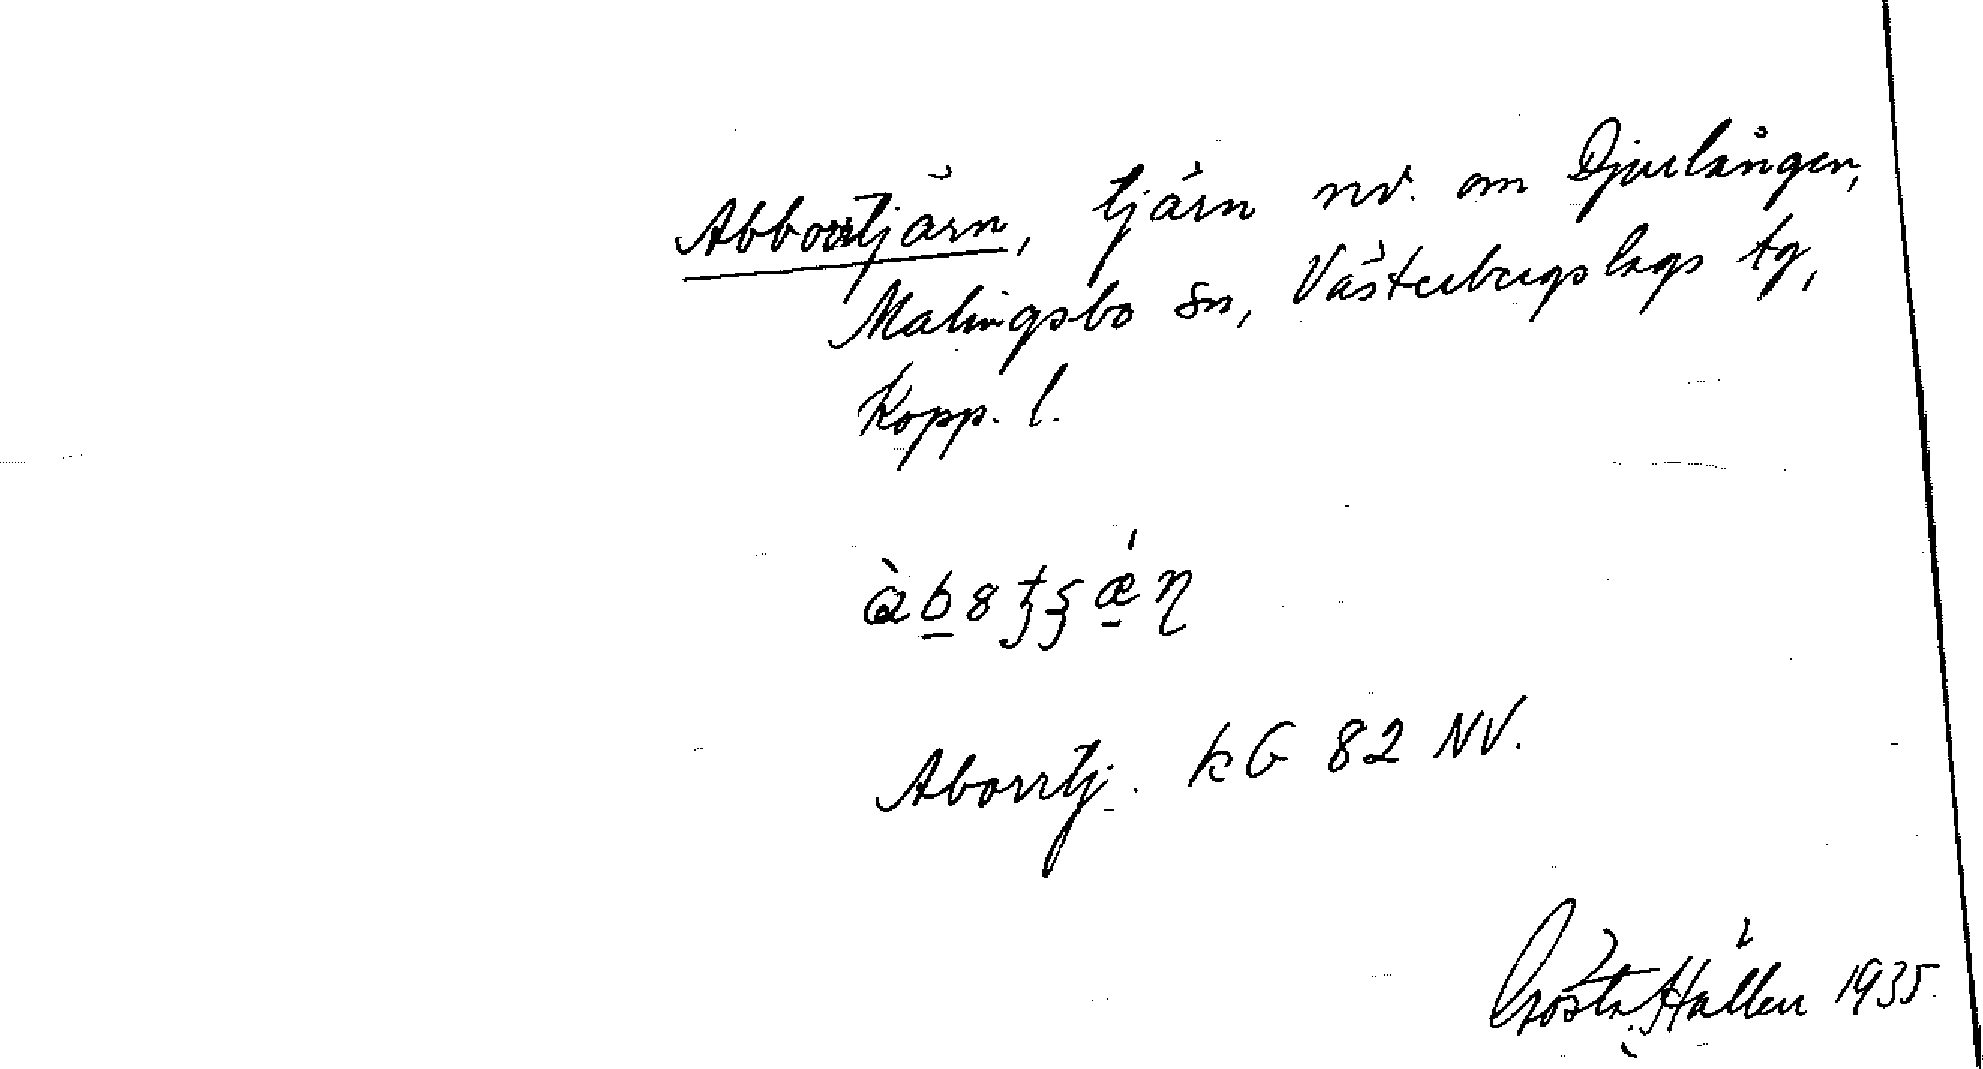 Abborrtjärn, tjärn nv. om Djurlången,
Malingsbo sn, Västerbergslags tg,
Kopp. l.
Aborrtj. kG 82 NV.
Gösta Hallen 1935.